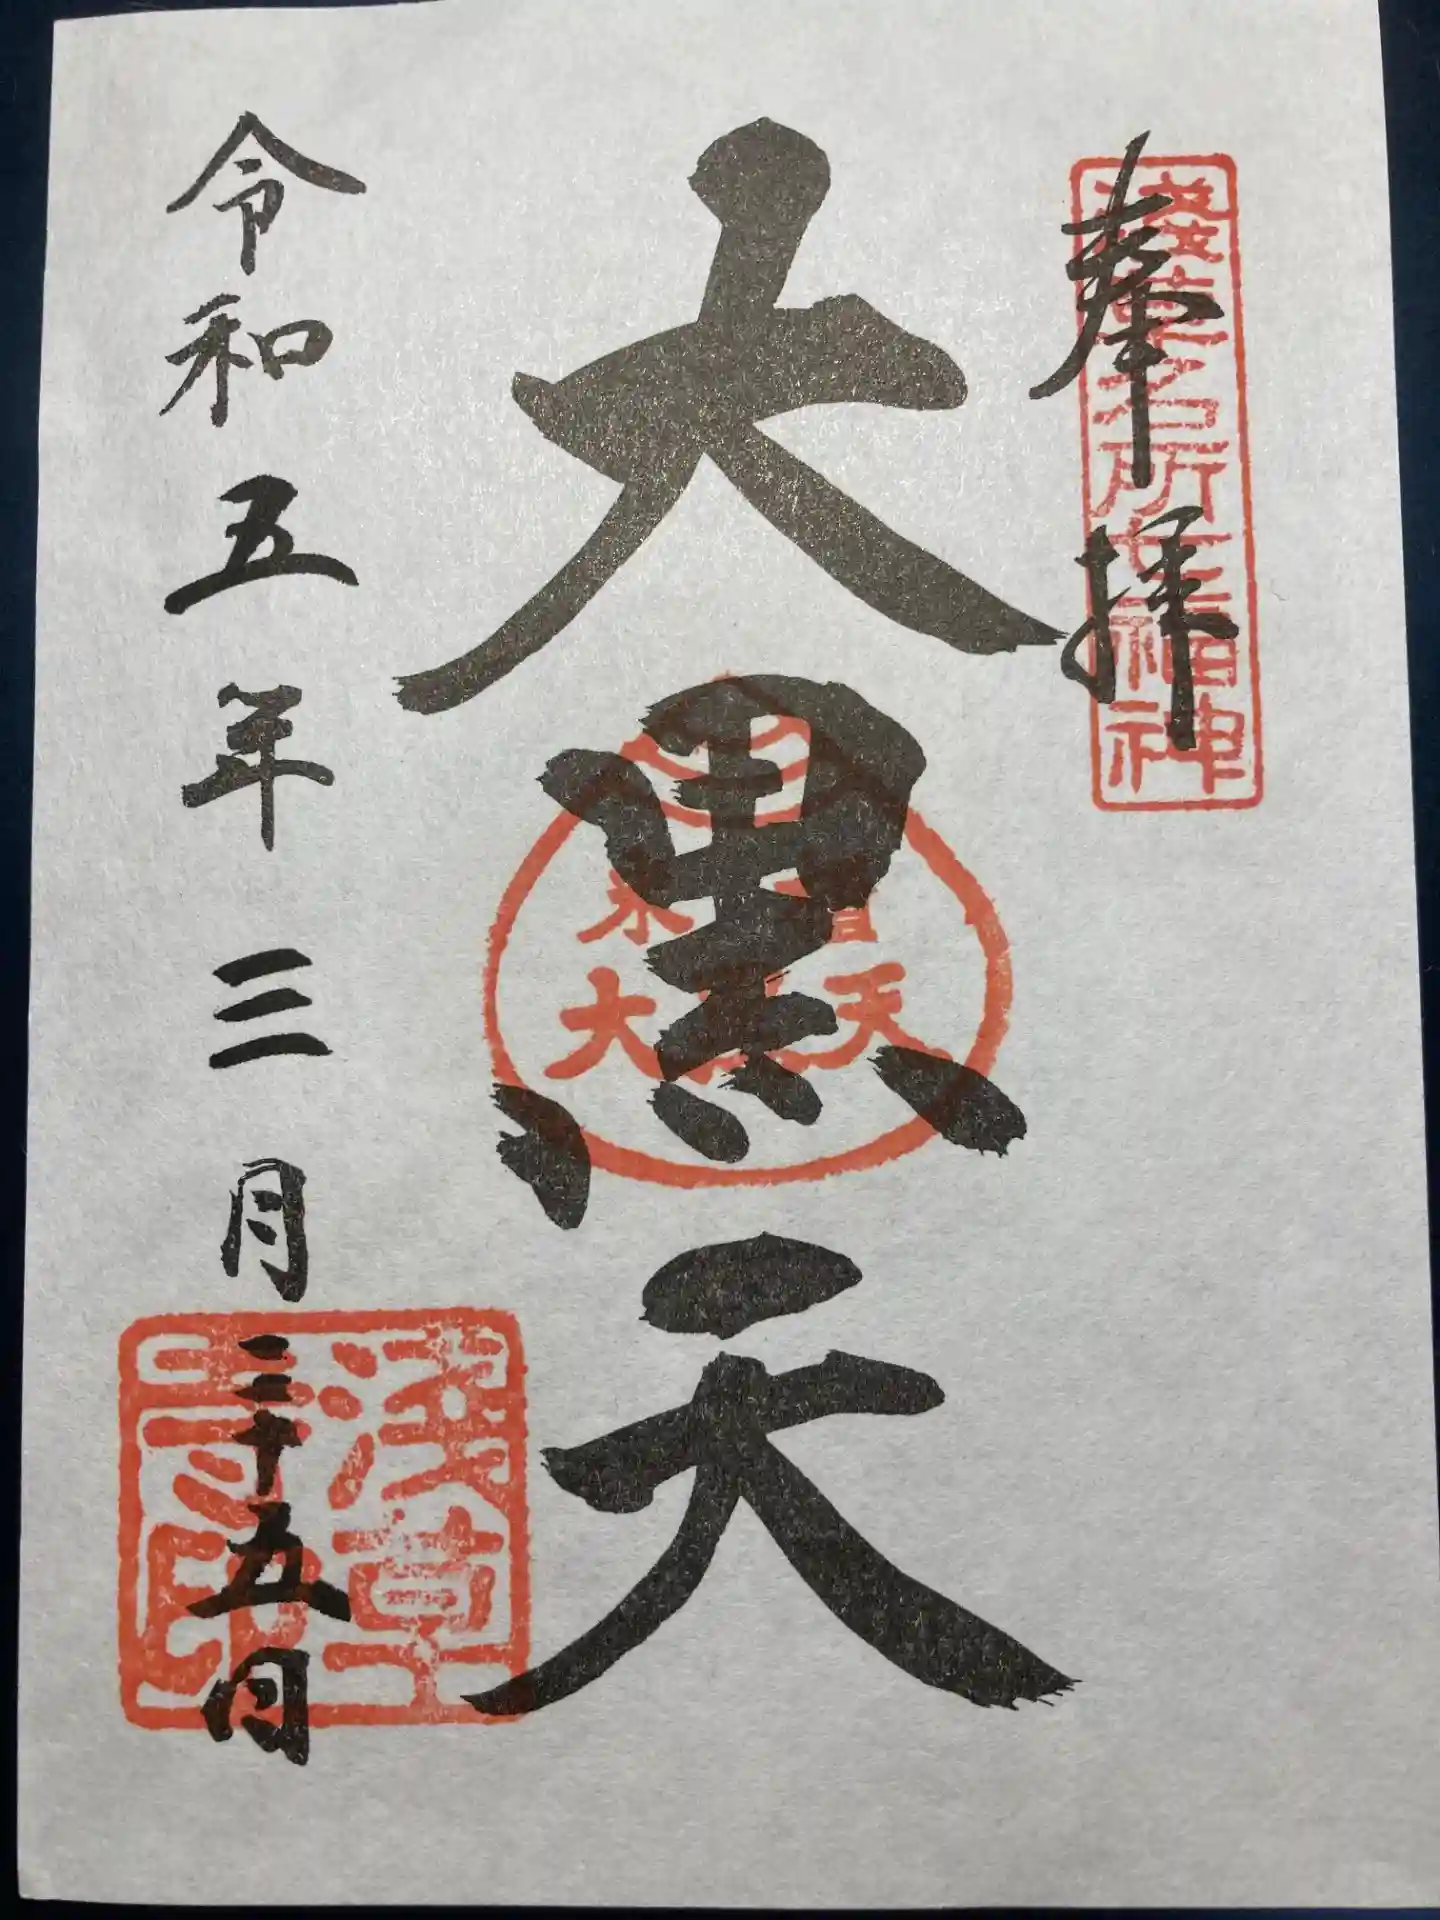 奉拝
淺草名所七福神
大黒天
大黒天
令和五年三月二十五日
浅草